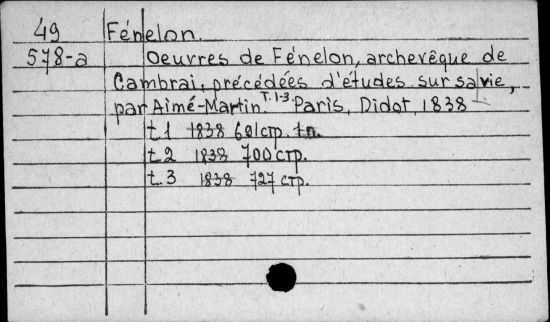 49 Fénelon.
578-a Oeuvres de Fénelon, archevêque de
Cambrai, précédées d'études sur sa vie,
par Aimé-Martin. T. 1-3. Paris, Didot, 1838
t. 1 1838 691 стр.
t. 2 1838 700 стр.
t. 3 1838 727 стр.